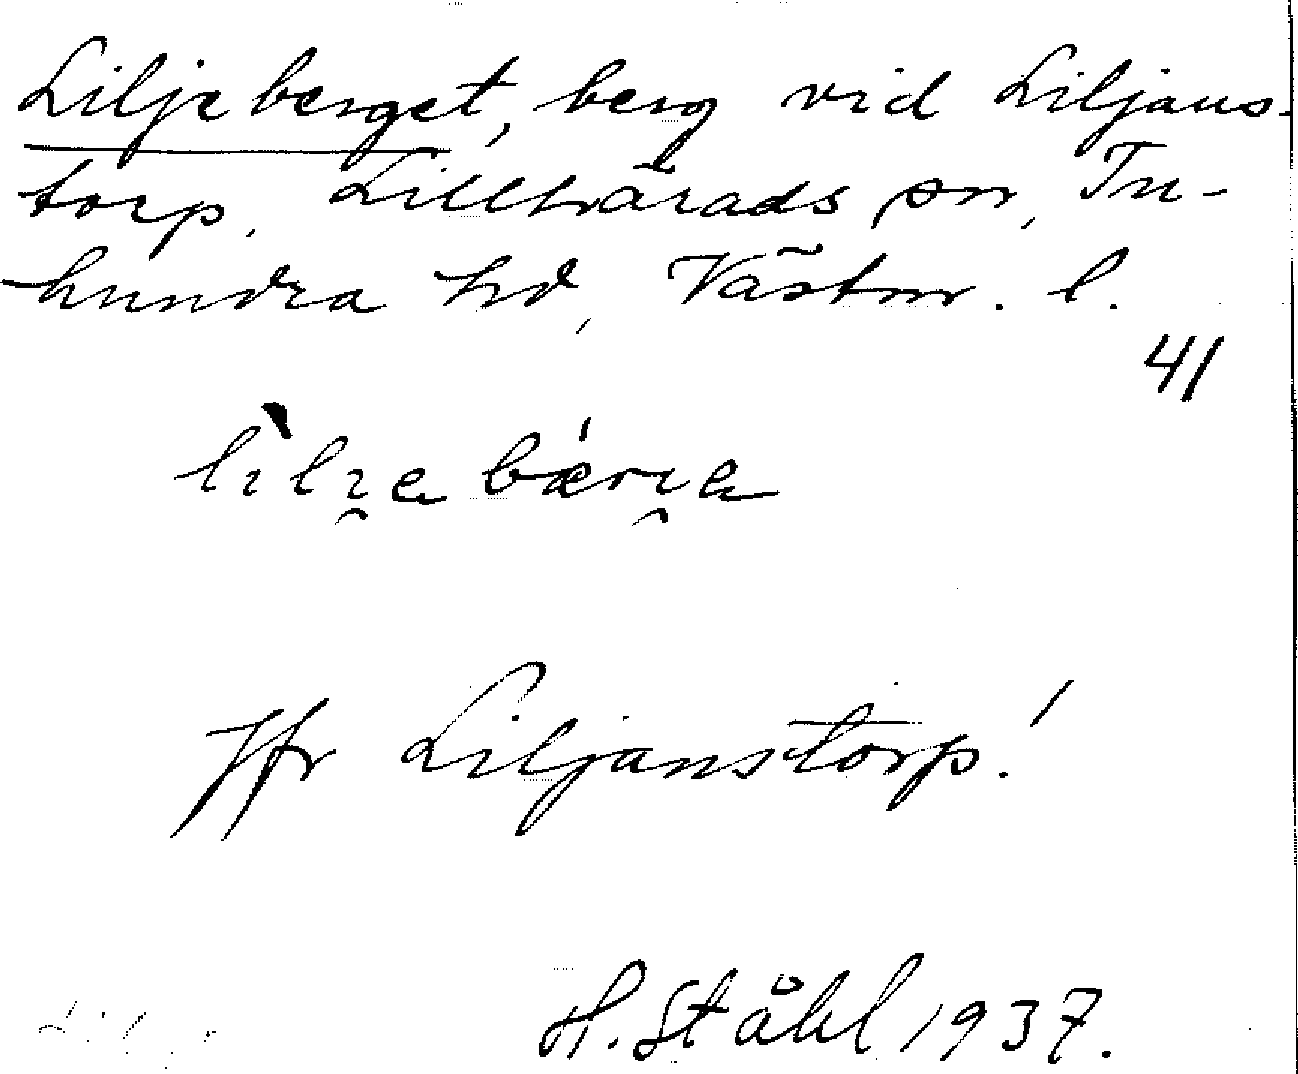 Liljeberget, berg vid Liljans-
torp, Lillhärads sn, Tu-
hundra hd, Västm. l.
41
lìlɪ̯a bǽrɪ̯a
Jfr Liljanstorp!
H. Ståhl 1937.